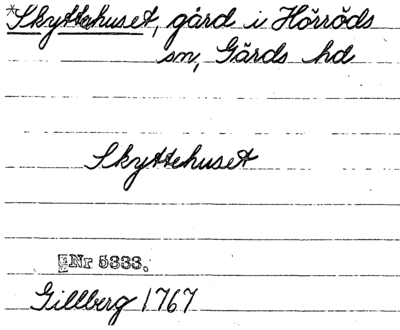 *Skyttahuset, gård i Hörröds
sn, Gärds hd
Skyttehuset
Nr 5333.
Gillberg 1767